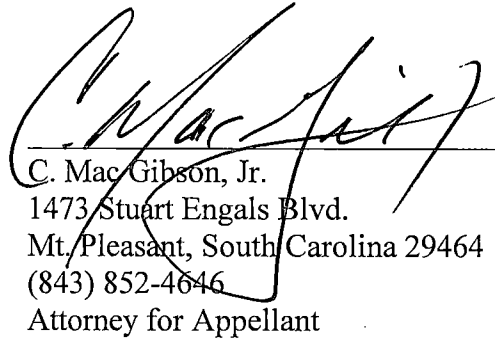 C. Mac Gibson, Jr.
1473 Stuart Engals Blvd.
Mt. Pleasant, South Carolina 29464
(843) 852-4646
Attorney for Appellant